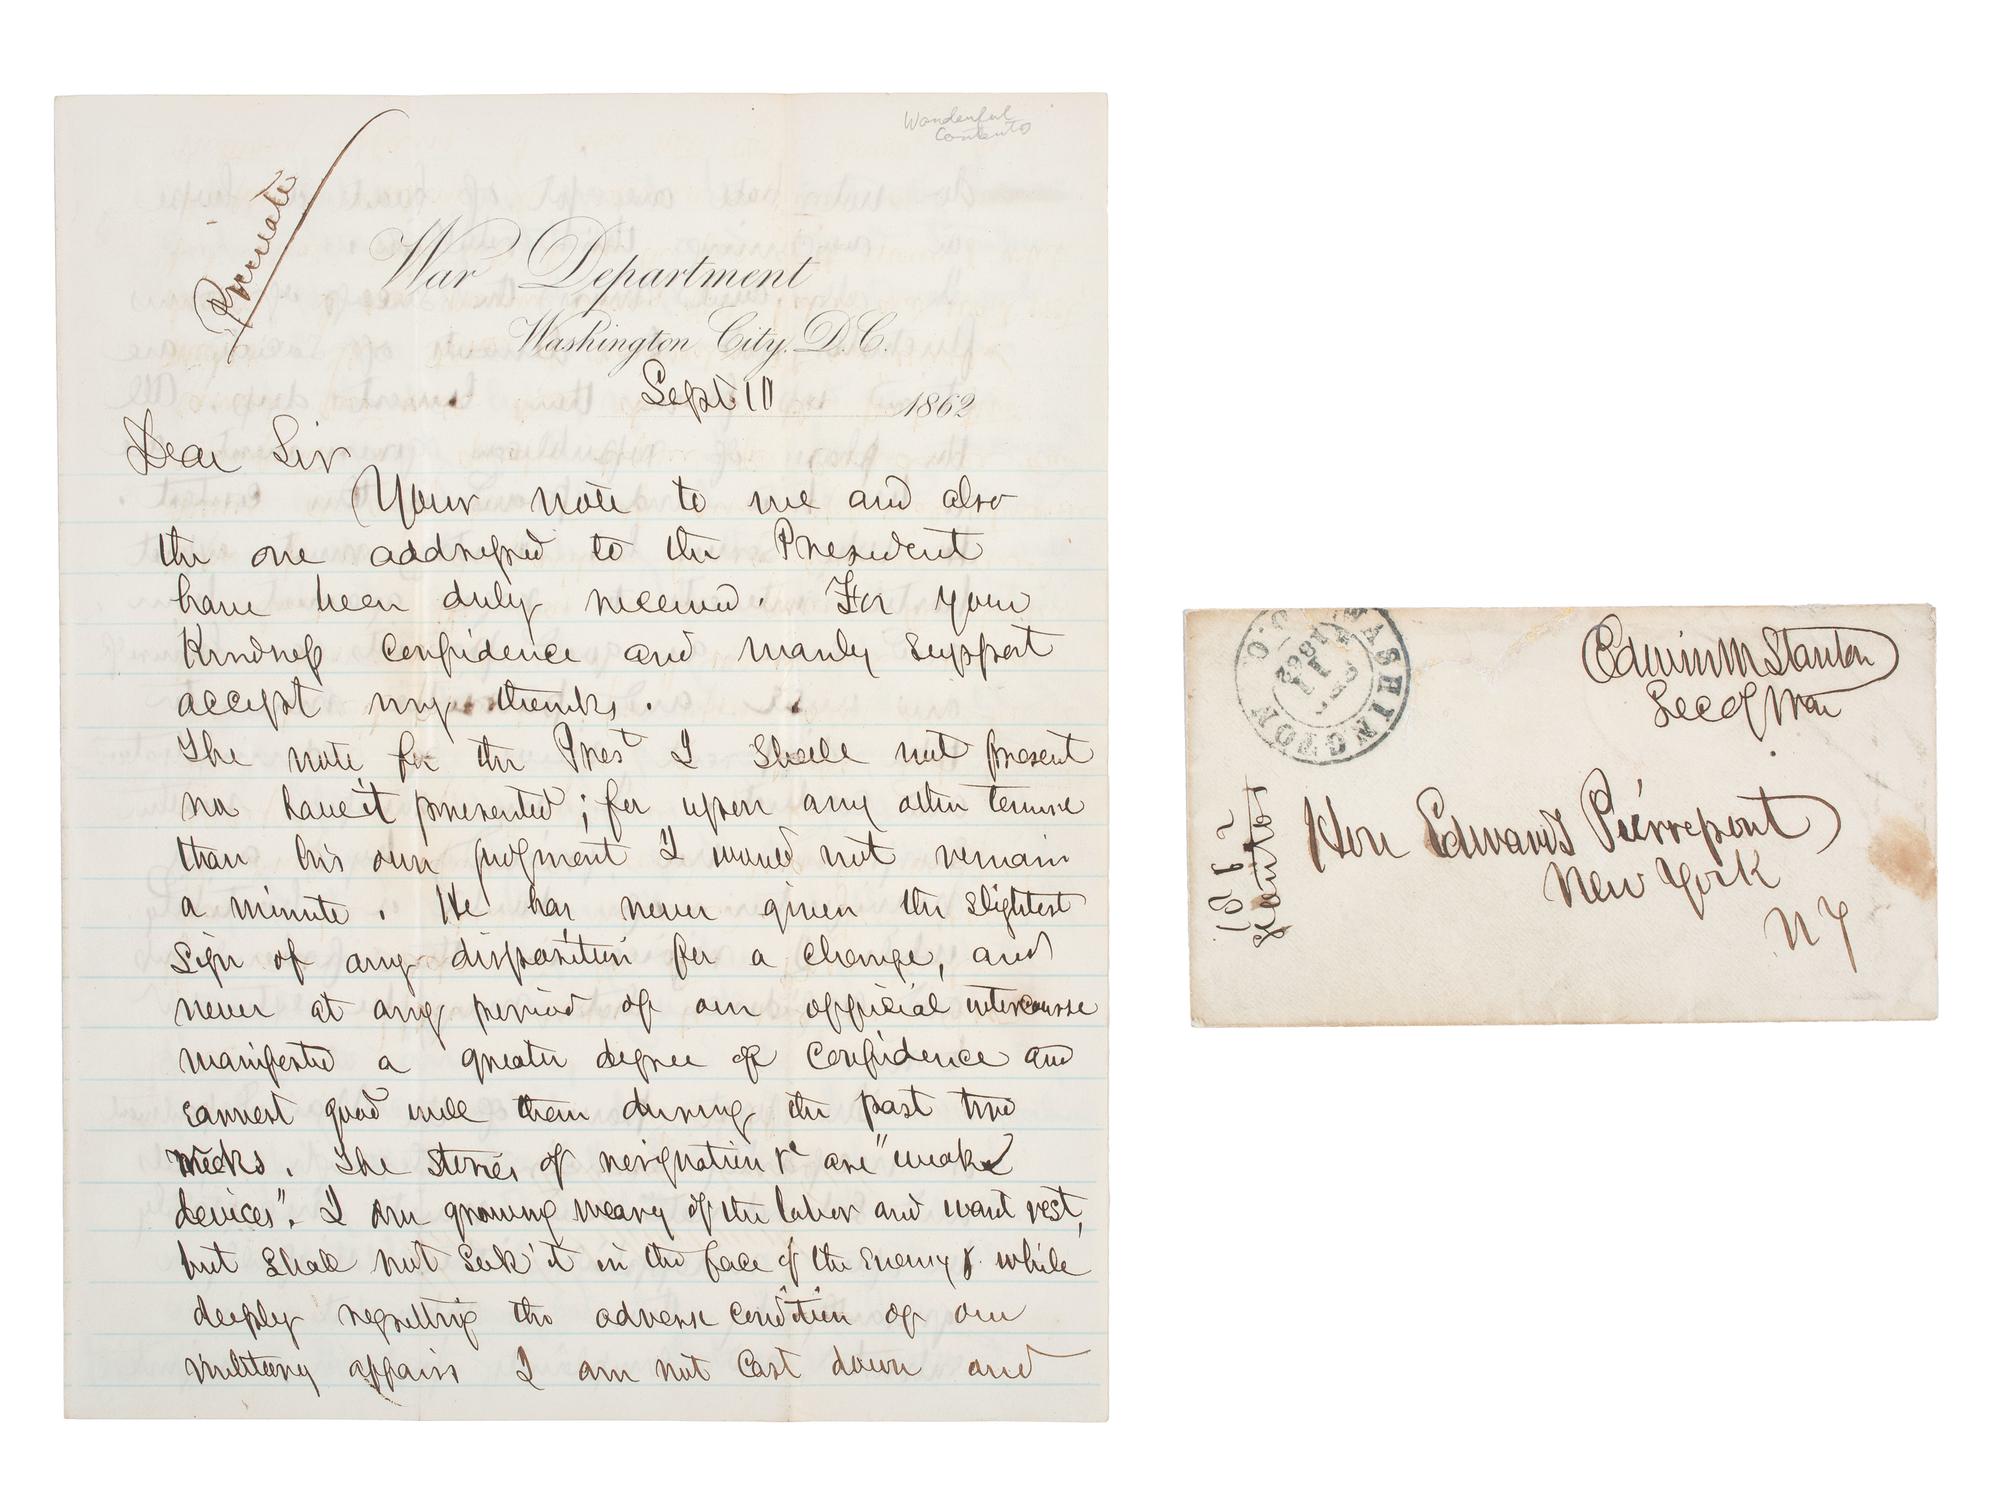 Wonderful
Contents
Private
War Department
Washington City, D.C.
Sept 10 1862
Dear Sir
Your note to me and also
the one addressed to the President
have been duly received. For your
Kindness Confidence and manly support
accept my thanks.
The note for the Prest I shall not present
nor have it presented; for upon any other tenure
than his own judgment I would not remain
a minute. He has never given the slightest
sign of any disposition for a change, and
never at any period of our official intercourse
manifested a greater degree of confidence and
earnest good will than during the past two
weeks. The stories of resignation &c are "weak
devices". I am growing weary of the labor and want rest,
but shall not seek it in the face of the Enemy & while
deeply regretting the adverse condition of our
military affairs I am not cast down and
WASHINGTON D.C.
SEP 11 1862
Edwin M Stanton
Sec of War
Hon Edwards Pierrepont
New York
N Y
1862
Stanton